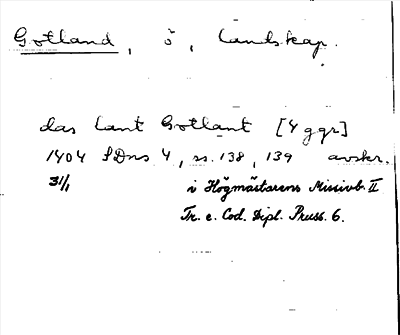 Gotland, ö, landskap.
das lant Gotlant [4 ggr]
1404 SDns 4, ss. 138, 139 avskr.
31/1 i Högmästarens Missivb. II
Tr. e. Cod. Dipl. Pruss. 6.